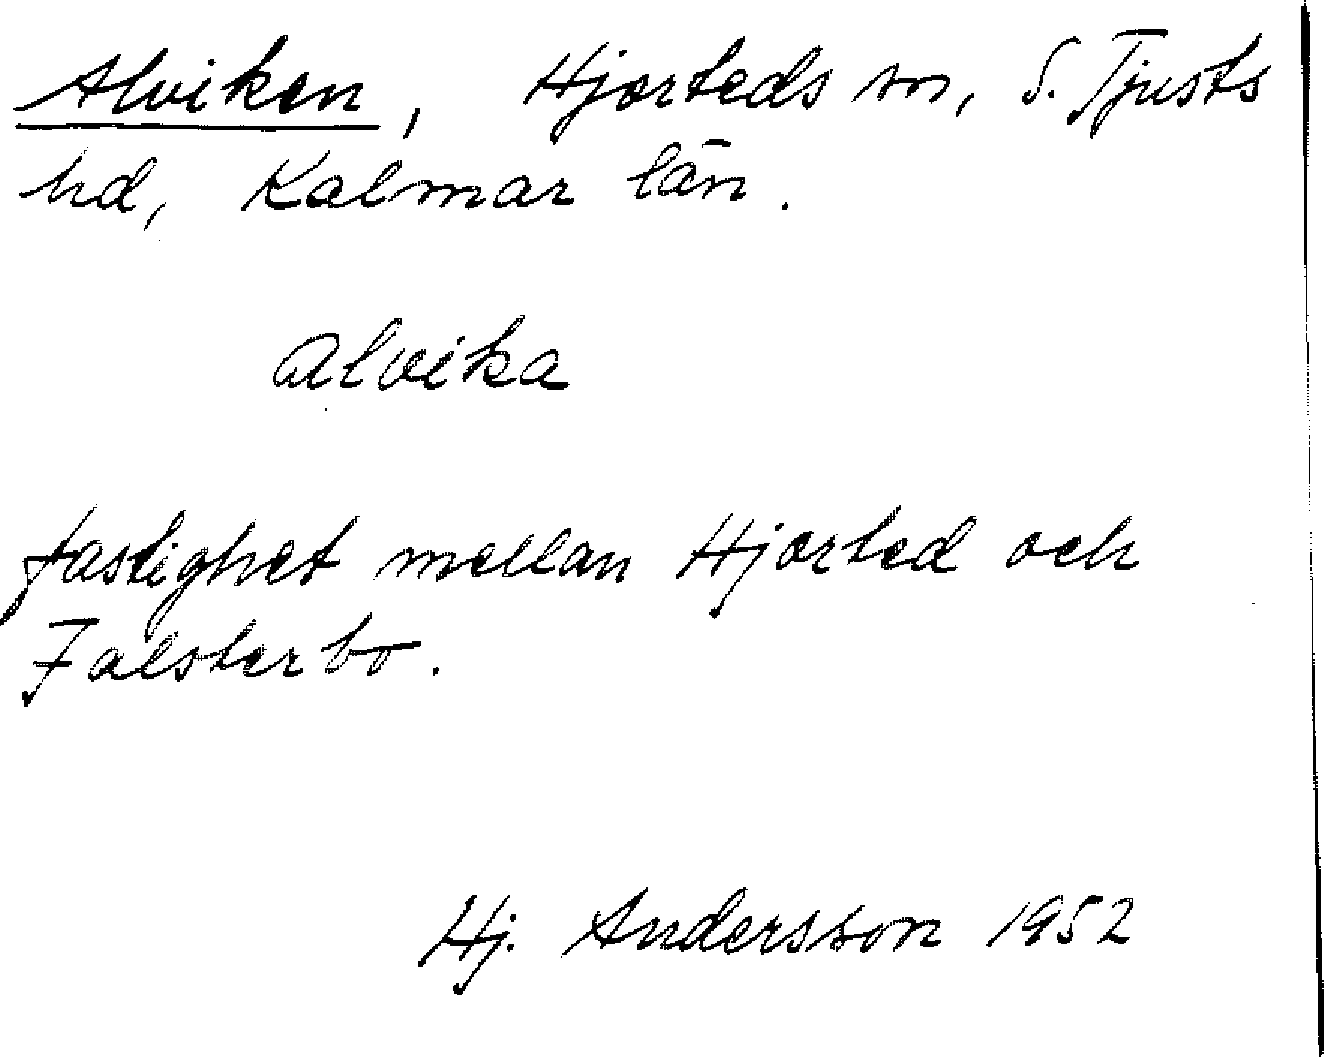 Alviken, Hjorteds sn, S. Tjusts
hd, Kalmar län.
alvika
fastighet mellan Hjorted och
Falsterbo.
Hj. Andersson 1952